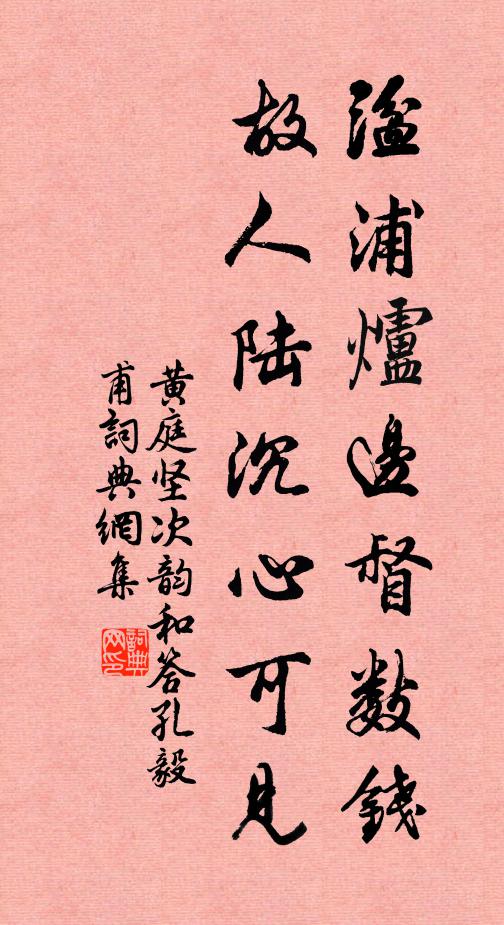 湓浦爐邊督數錢
故人陆沉心可見
黄庭坚次韵和答孔毅
甫詞典網集
詞典网印